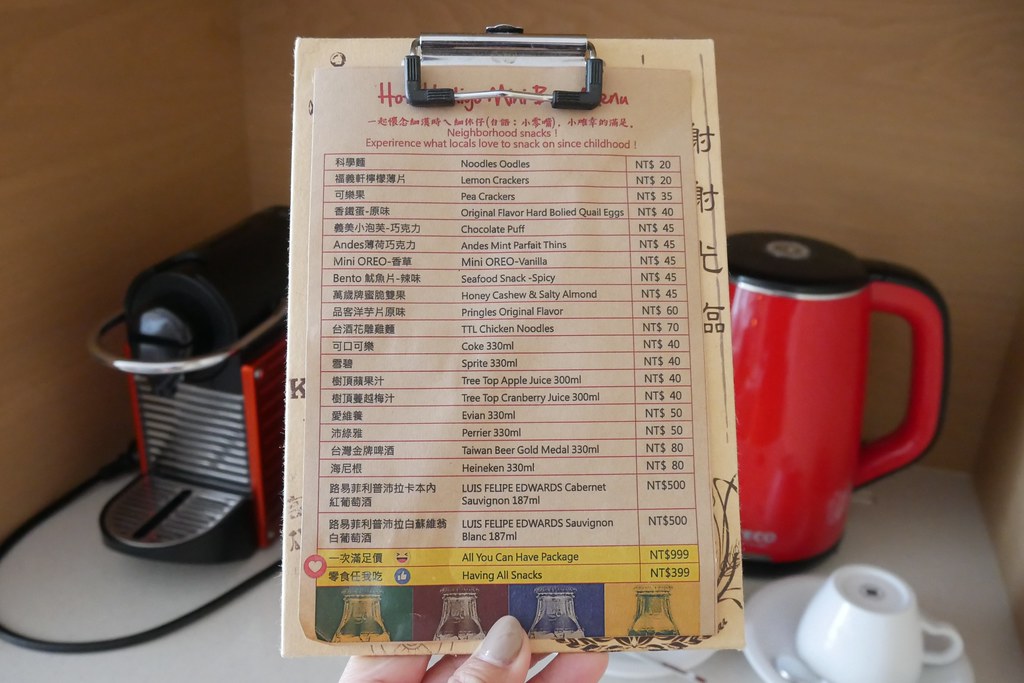 Mini
一起懷念細漢時ㄟ細休仔(台語:小零嘴), 小確幸的滿足。
Neighborhood snacks !
Experirence what locals love to snack on since childhood !
科學麵 Noodles Oodles NT$ 20
福義軒檸檬薄片 Lemon Crackers NT$ 20
可樂果 Pea Crackers NT$ 35
香鐵蛋-原味 Original Flavor Hard Bolied Quail Eggs NT$ 40
義美小泡芙-巧克力 Chocolate Puff NT$ 45
Andes薄荷巧克力 Andes Mint Parfait Thins NT$ 45
Mini OREO-香草 Mini OREO-Vanilla NT$ 45
Bento 魷魚片-辣味 Seafood Snack -Spicy NT$ 45
萬歲牌蜜脆雙果 Honey Cashew & Salty Almond NT$ 45
品客洋芋片原味 Pringles Original Flavor NT$ 60
台酒花雕雞麵 TTL Chicken Noodles NT$ 70
可口可樂 Coke 330ml NT$ 40
雪碧 Sprite 330ml NT$ 40
樹頂蘋果汁 Tree Top Apple Juice 300ml NT$ 40
樹頂蔓越梅汁 Tree Top Cranberry Juice 300ml NT$ 40
愛維養 Evian 330ml NT$ 50
沛綠雅 Perrier 330ml NT$ 50
台灣金牌啤酒 Taiwan Beer Gold Medal 330ml NT$ 80
海尼根 Heineken 330ml NT$ 80
路易菲利普沛拉卡本內 LUIS FELIPE EDWARDS Cabernet NT$500
紅葡萄酒 Sauvignon 187ml
路易菲利普沛拉白蘇維翁 LUIS FELIPE EDWARDS Sauvignon NT$500
白葡萄酒 Blanc 187ml
一次滿足價 All You Can Have Package NT$999
零食任我吃 Having All Snacks NT$399